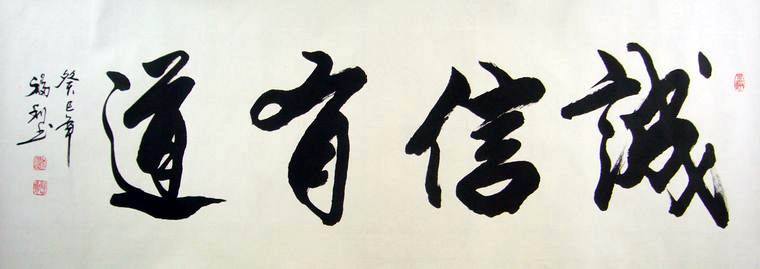 誠信有道
癸巳年
福利书